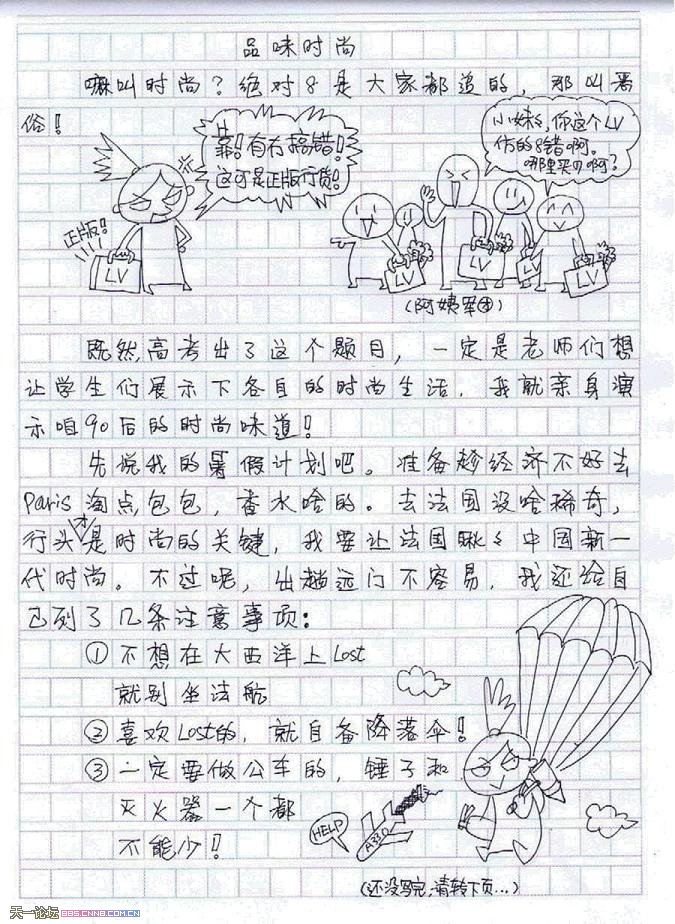 品味时尚
嘛叫时尚？绝对8是大家都追的，那叫恶
俗！
靠！有冇搞错！
这可是正版行货！
小妹々，你这个LV
仿的8错啊。
哪里买の啊？
正版！
LV
LV
LV
LV
LV
（阿姨军团）
既然高考出了这个题目，一定是老师们想
让学生们展示下各自的时尚生活．我就亲身演
示咱90后的时尚味道！
先说我的暑假计划吧。准备趁经济不好去
Paris淘点包包，香水啥的。去法国没啥稀奇，
行头才是时尚的关键，我要让法国瞅々中国新一
代时尚。不过呢，出趟远门不容易．我还给自
己列了几条注意事项：
①不想在大西洋上Lost
就别坐法航
②喜欢Lost的，就自备降落伞！
③一定要做公车的，锤子和
灭火器一个都
不能少！
HELP
A330
（还没写完，请转下页...）
天一论坛 BBS.CNNB.COM.CN